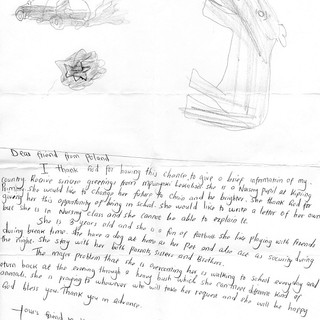 Dear friend from Poland
I Thank God for having this chance, to give a brief information of my
country. Receive sincere greetings from she is a Nursery pupil at
Primary. She would like to change her future to choice and be brighter. She thank God for
giving her this opportunity of being in school. She would like to write a letter of her own
but she is in Nursery class and she cannot be able to explain it.
She is 3 years old and she is a fun of football she like playing with friends
during break time. She have a dog at home as her Pet and also act as security during
the night. She stay with her both parents, sisters and Brothers.
The major problem that she is overcoming her, is walking to school everyday and
return back at the evening through a heavy bush which she can meet different kind of
animals. She is praying to whomever who will take her request and she will be happy
God bless you. Thank you in advance.
Yours friend